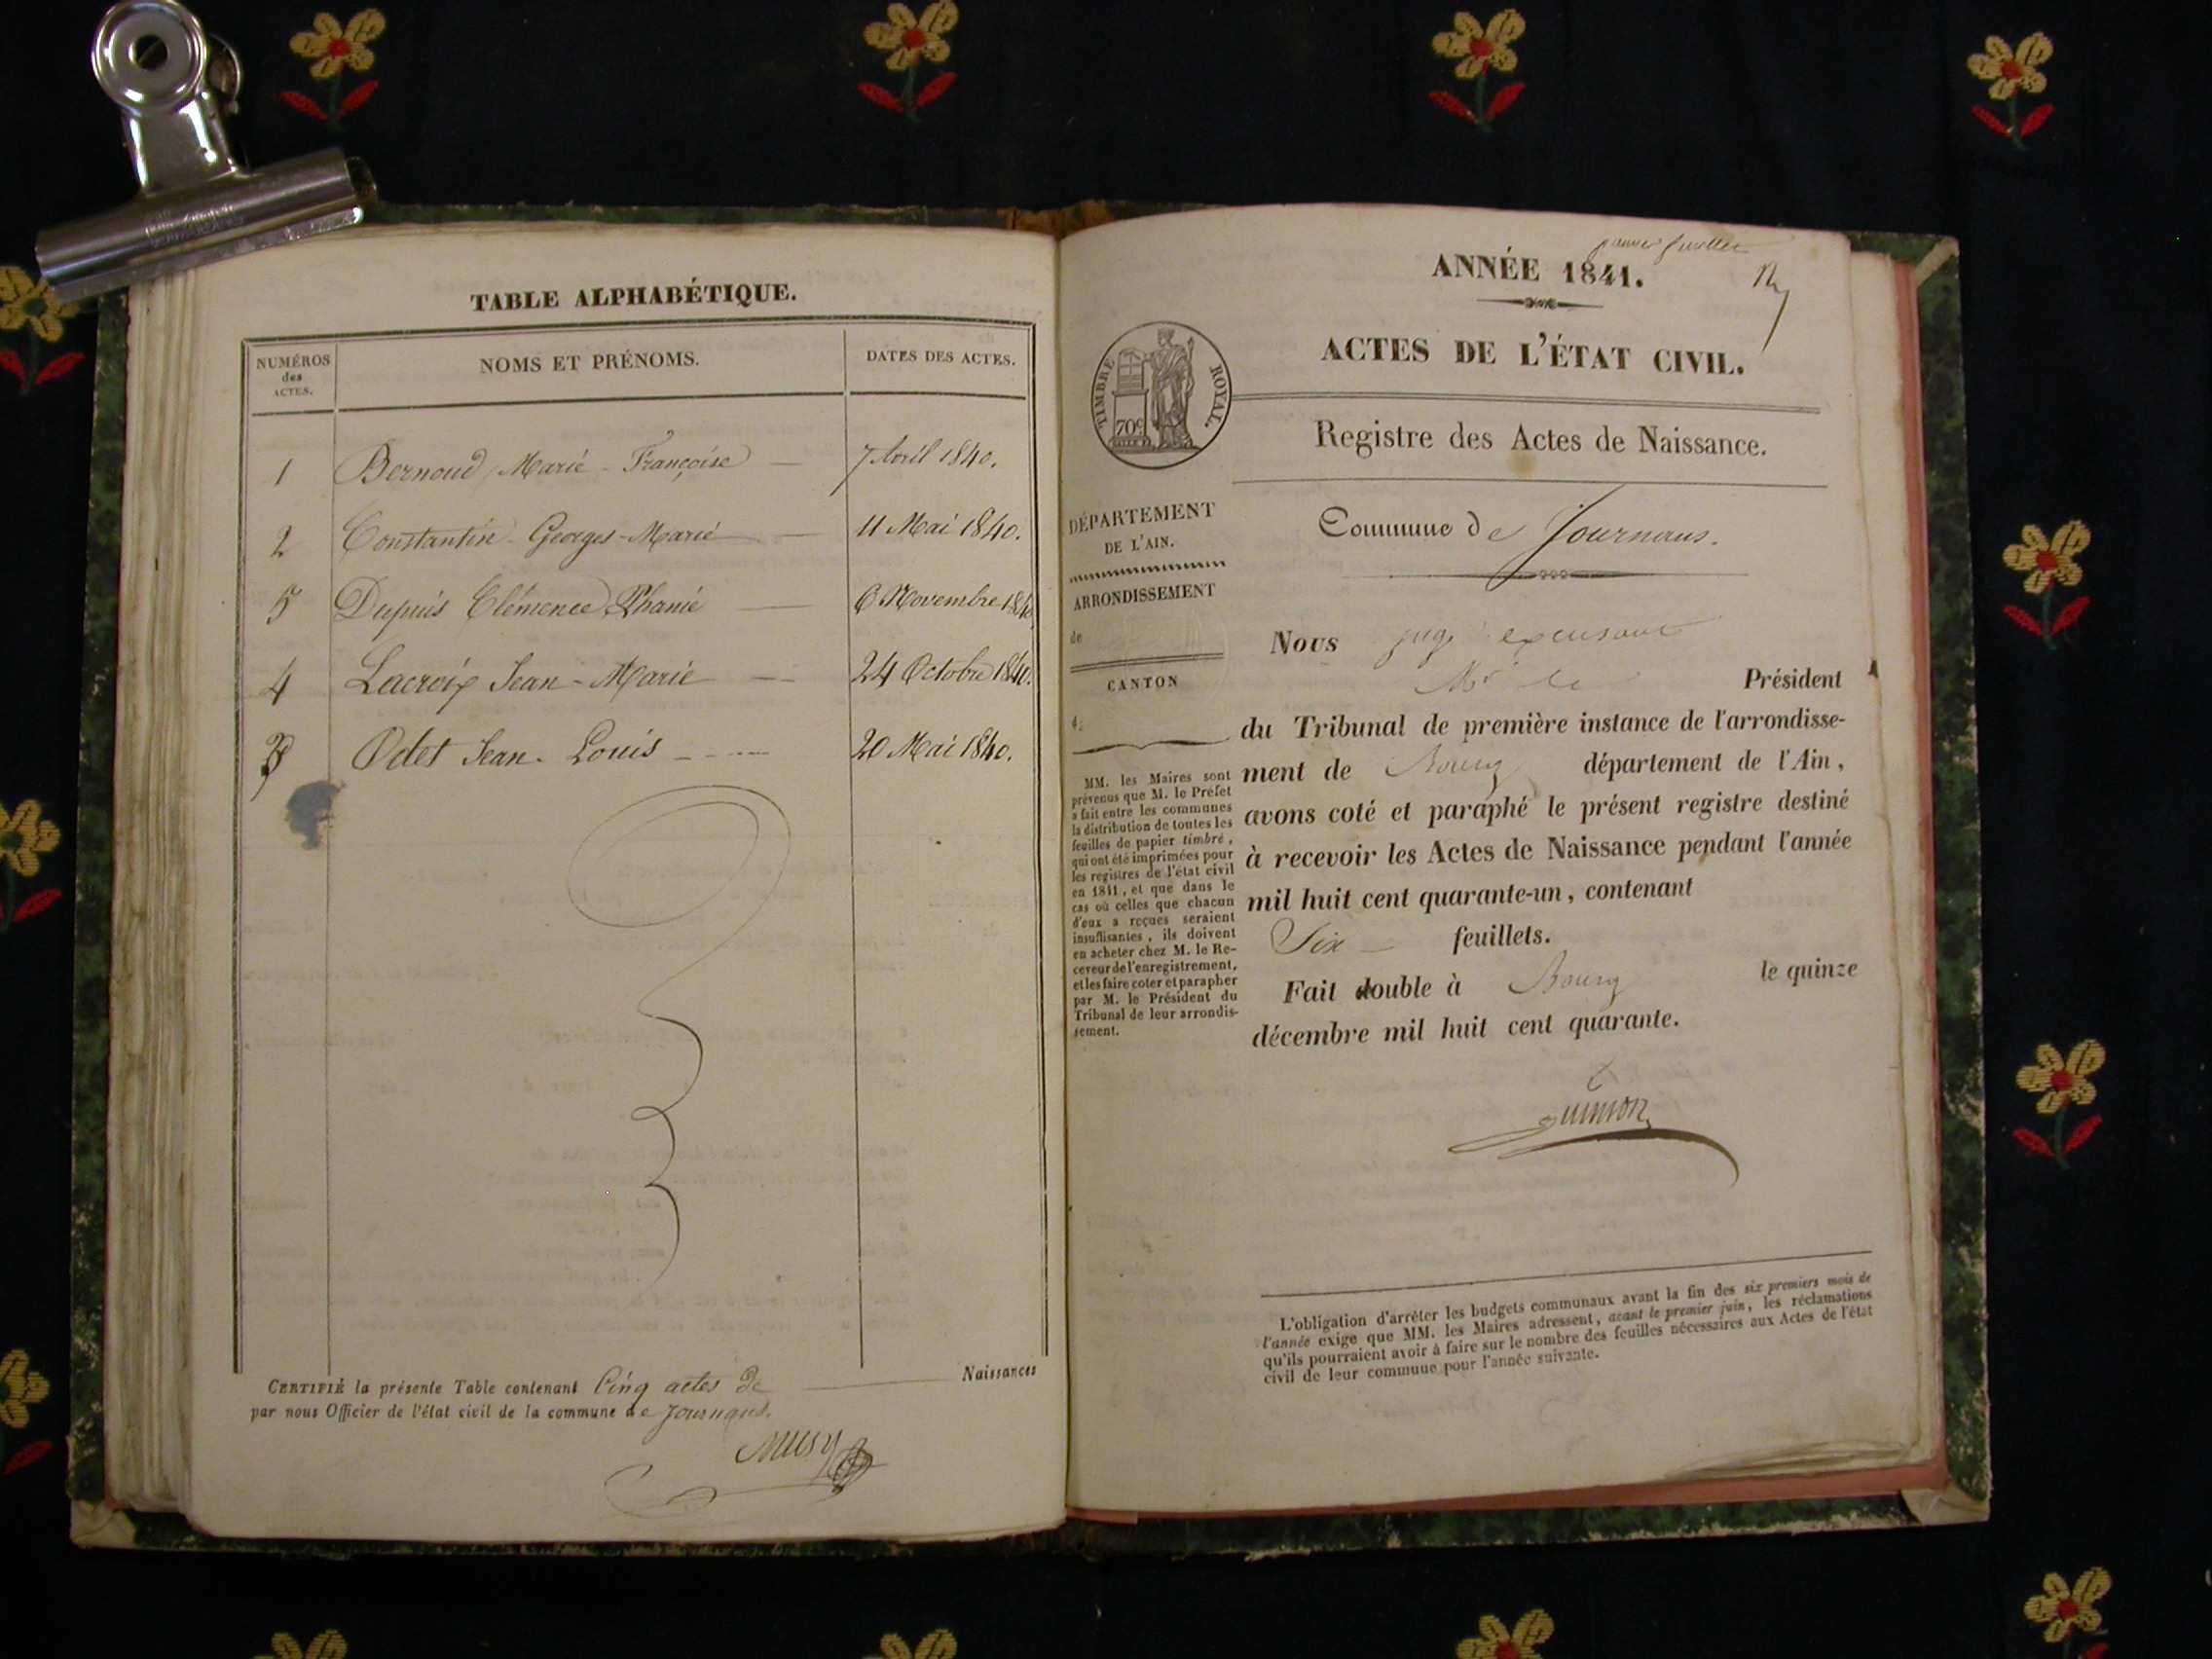 TABLE ALPHABÉTIQUE.
NUMÉROS
des
ACTES.
NOMS ET PRÉNOMS.
DATES DES ACTES.
1 Bernoud Marie-Françoise 7 Avril 1840.
2 Constantin Georges-Marie 11 Mai 1840.
5 Dupuis Clémence 6 Novembre 1840
4 Lacroix Jean-Marie 24 Octobre 1840.
3 Odet Jean-Louis 20 Mai 1840.
CERTIFIÉ la présente Table contenant Cinq actes de Naissances
par nous Officier de l'état civil de la commune de Journans.
premier feuillet
ANNÉE 1841.
ACTES DE L'ÉTAT CIVIL.
TIMBRE ROYAL.
70c
Registre des Actes de Naissance.
Commune de Journans.
DÉPARTEMENT
DE L'AIN.
ARRONDISSEMENT
de
CANTON
de
MM. les Maires sont
prévenus que M. le Préfet
a fait entre les communes
la distribution de toutes les
feuilles de papier timbré,
qui ont été imprimées pour
les registres de l'état civil
en 1841, et que dans le
cas où celles que chacun
d'eux a reçues seraient
insuffisantes, ils doivent
en acheter chez M. le Re-
ceveur de l'enregistrement,
et les faire coter et parapher
par M. le Président du
Tribunal de leur arrondis-
sement.
Nous juge
Mr le Président
du Tribunal de première instance de l'arrondisse-
ment de Bourg département de l'Ain,
avons coté et paraphé le présent registre destiné
à recevoir les Actes de Naissance pendant l'année
mil huit cent quarante-un, contenant
Six feuillets.
Fait double à Bourg le quinze
décembre mil huit cent quarante.
L'obligation d'arrêter les budgets communaux avant la fin des six premiers mois de
l'année exige que MM. les Maires adressent, avant le premier juin, les réclamations
qu'ils pourraient avoir à faire sur le nombre des feuilles nécessaires aux Actes de l'état
civil de leur commune pour l'année suivante.